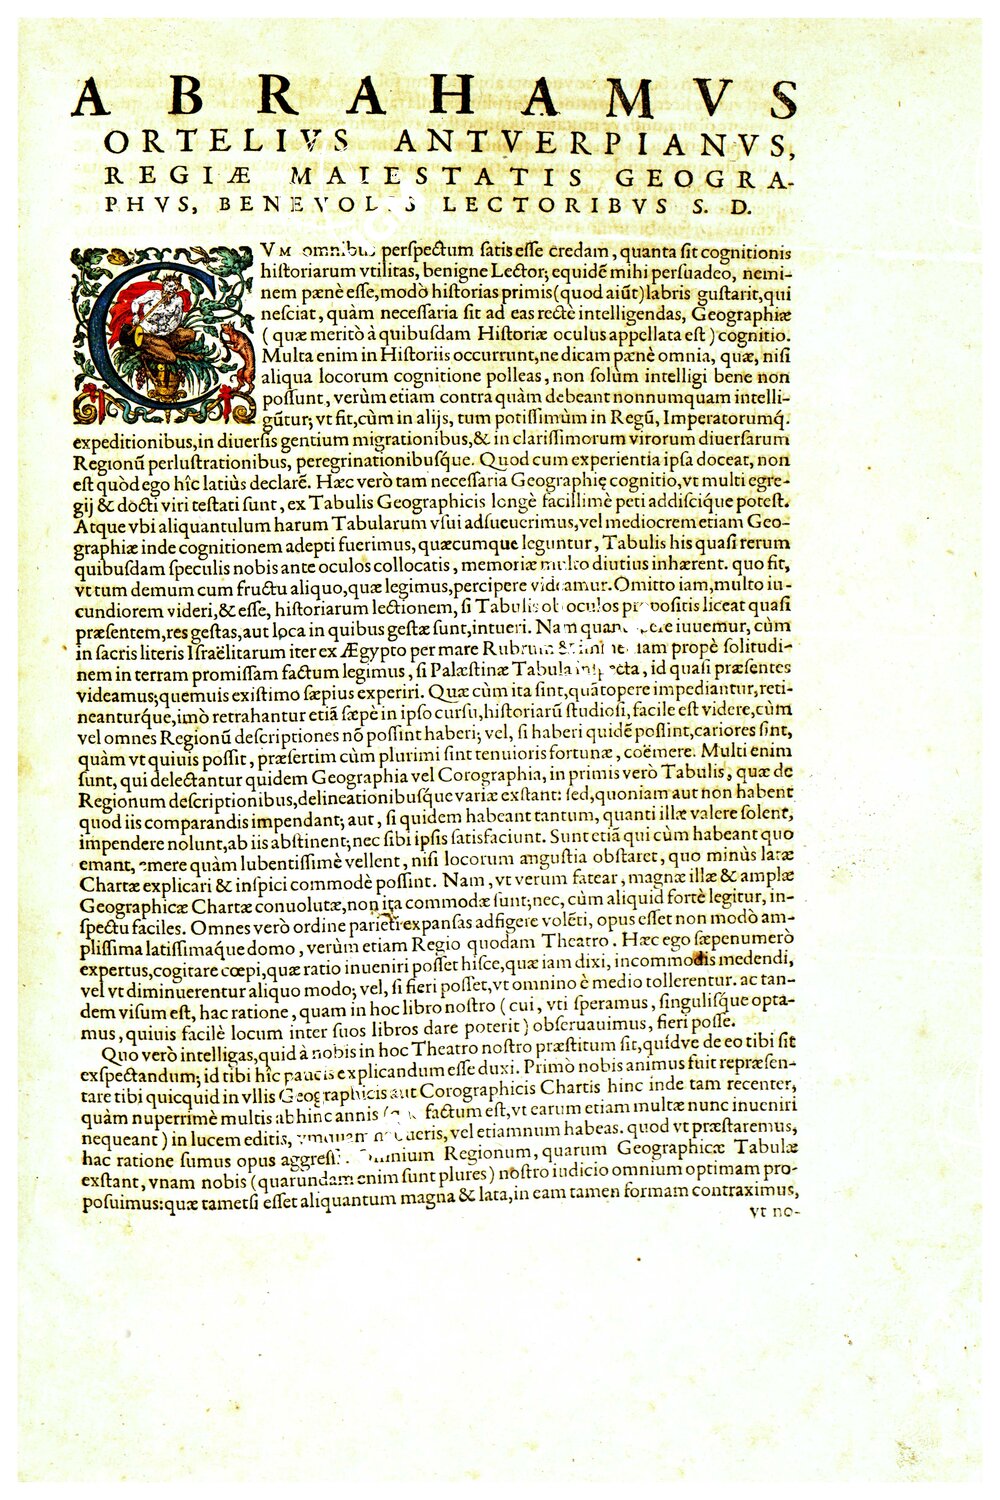 ABRAHAMVS
ORTELIVS ANTVERPIANVS,
REGIÆ MAIESTATIS GEOGRA-
PHVS, BENEVOLIS LECTORIBVS S. D.
CVM omnibus perſpectum ſatis eſſe credam, quanta ſit cognitionis
hiſtoriarum vtilitas, benigne Lector; equidē mihi perſuadeo, nemi-
nem pænè eſſe, modò hiſtorias primis (quod aiūt) labris guſtarit, qui
neſciat, quàm neceſſaria ſit ad eas rectè intelligendas, Geographiæ
(quæ meritò à quibuſdam Hiſtoriæ oculus appellata eſt) cognitio.
Multa enim in Hiſtoriis occurrunt, ne dicam pænè omnia, quæ, niſi
aliqua locorum cognitione polleas, non ſolùm intelligi bene non
poſſunt, verùm etiam contra quàm debeant nonnumquam intelli-
gūtur; vt fit, cùm in alijs, tum potiſſimùm in Regū, Imperatorumq́.
expeditionibus, in diuerſis gentium migrationibus, & in clariſſimorum virorum diuerſarum
Regionū perluſtrationibus, peregrinationibuſque. Quod cum experientia ipſa doceat, non
eſt quòd ego hîc latiùs declarē. Hæc verò tam neceſſaria Geographię cognitio, vt multi egre-
gij & docti viri teſtati ſunt, ex Tabulis Geographicis longè facillimè peti addiſcique poteſt.
Atque vbi aliquantulum harum Tabularum vſui adſueuerimus, vel mediocrem etiam Geo-
graphiæ inde cognitionem adepti fuerimus, quæcumque leguntur, Tabulis his quaſi rerum
quibuſdam ſpeculis nobis ante oculos collocatis, memoriæ multo diutius inhærent. quo fit,
vt tum demum cum fructu aliquo, quæ legimus, percipere videamur. Omitto iam, multo iu-
cundiorem videri, & eſſe, hiſtoriarum lectionem, ſi Tabulis ob oculos propoſitis liceat quaſi
præſentem, res geſtas, aut loca in quibus geſtæ ſunt, intueri. Nam iuuemur, cùm
in ſacris literis Iſraëlitarum iter ex Ægypto per mare Rubrum & propè ſolitudi-
nem in terram promiſſam factum legimus, ſi Palæſtinæ Tabula inſpecta, id quaſi præſentes
videamus; quemuis exiſtimo ſæpius experiri. Quæ cùm ita ſint, quātopere impediantur, reti-
neanturq́ue, imò retrahantur etiā ſæpè in ipſo curſu, hiſtoriarū ſtudioſi, facile eſt videre, cùm
vel omnes Regionū deſcriptiones nō poſſint haberi; vel, ſi haberi quidē poſſint, cariores ſint,
quàm vt quiuis poſſit, præſertim cùm plurimi ſint tenuioris fortunæ, coëmere. Multi enim
ſunt, qui delectantur quidem Geographia vel Corographia, in primis verò Tabulis, quæ de
Regionum deſcriptionibus, delineationibuſq́ue variæ exſtant: ſed, quoniam aut non habent
quod iis comparandis impendant; aut, ſi quidem habeant tantum, quanti illæ valere ſolent,
impendere nolunt, ab iis abſtinent; nec ſibi ipſis ſatisfaciunt. Sunt etiā qui cùm habeant quo
emant, emere quàm lubentiſſimè vellent, niſi locorum anguſtia obſtaret, quo minùs latæ
Chartæ explicari & inſpici commodè poſſint. Nam, vt verum fatear, magnæ illæ & amplæ
Geographicæ Chartæ conuolutæ, non ita commodæ ſunt; nec, cùm aliquid fortè legitur, in-
ſpectu faciles. Omnes verò ordine parieti expanſas adfigere volēti, opus eſſet non modò am-
pliſſima latiſſimaque domo, verùm etiam Regio quodam Theatro. Hæc ego ſæpenumerò
expertus, cogitare cœpi, quæ ratio inueniri poſſet hiſce, quæ iam dixi, incommodis medendi,
vel vt diminuerentur aliquo modo; vel, ſi fieri poſſet, vt omnino è medio tollerentur. ac tan-
dem viſum eſt, hac ratione, quam in hoc libro noſtro (cui, vti ſperamus, ſinguliſque opta-
mus, quiuis facilè locum inter ſuos libros dare poterit) obſeruauimus, fieri poſſe.
Quo verò intelligas, quid à nobis in hoc Theatro noſtro præſtitum ſit, quidve de eo tibi ſit
exſpectandum; id tibi hîc paucis explicandum eſſe duxi. Primò nobis animus fuit repræſen-
tare tibi quicquid in vllis Geographicis aut Corographicis Chartis hinc inde tam recenter,
quàm nuperrimè multis abhinc annis factum eſt, vt earum etiam multæ nunc inueniri
nequeant) in lucem editis, vel etiamnum habeas. quod vt præſtaremus,
hac ratione ſumus opus aggreſſi. Omnium Regionum, quarum Geographicæ Tabulæ
exſtant, vnam nobis (quarundam enim ſunt plures) noſtro iudicio omnium optimam pro-
poſuimus: quæ tametſi eſſet aliquantum magna & lata, in eam tamen formam contraximus,
vt no-